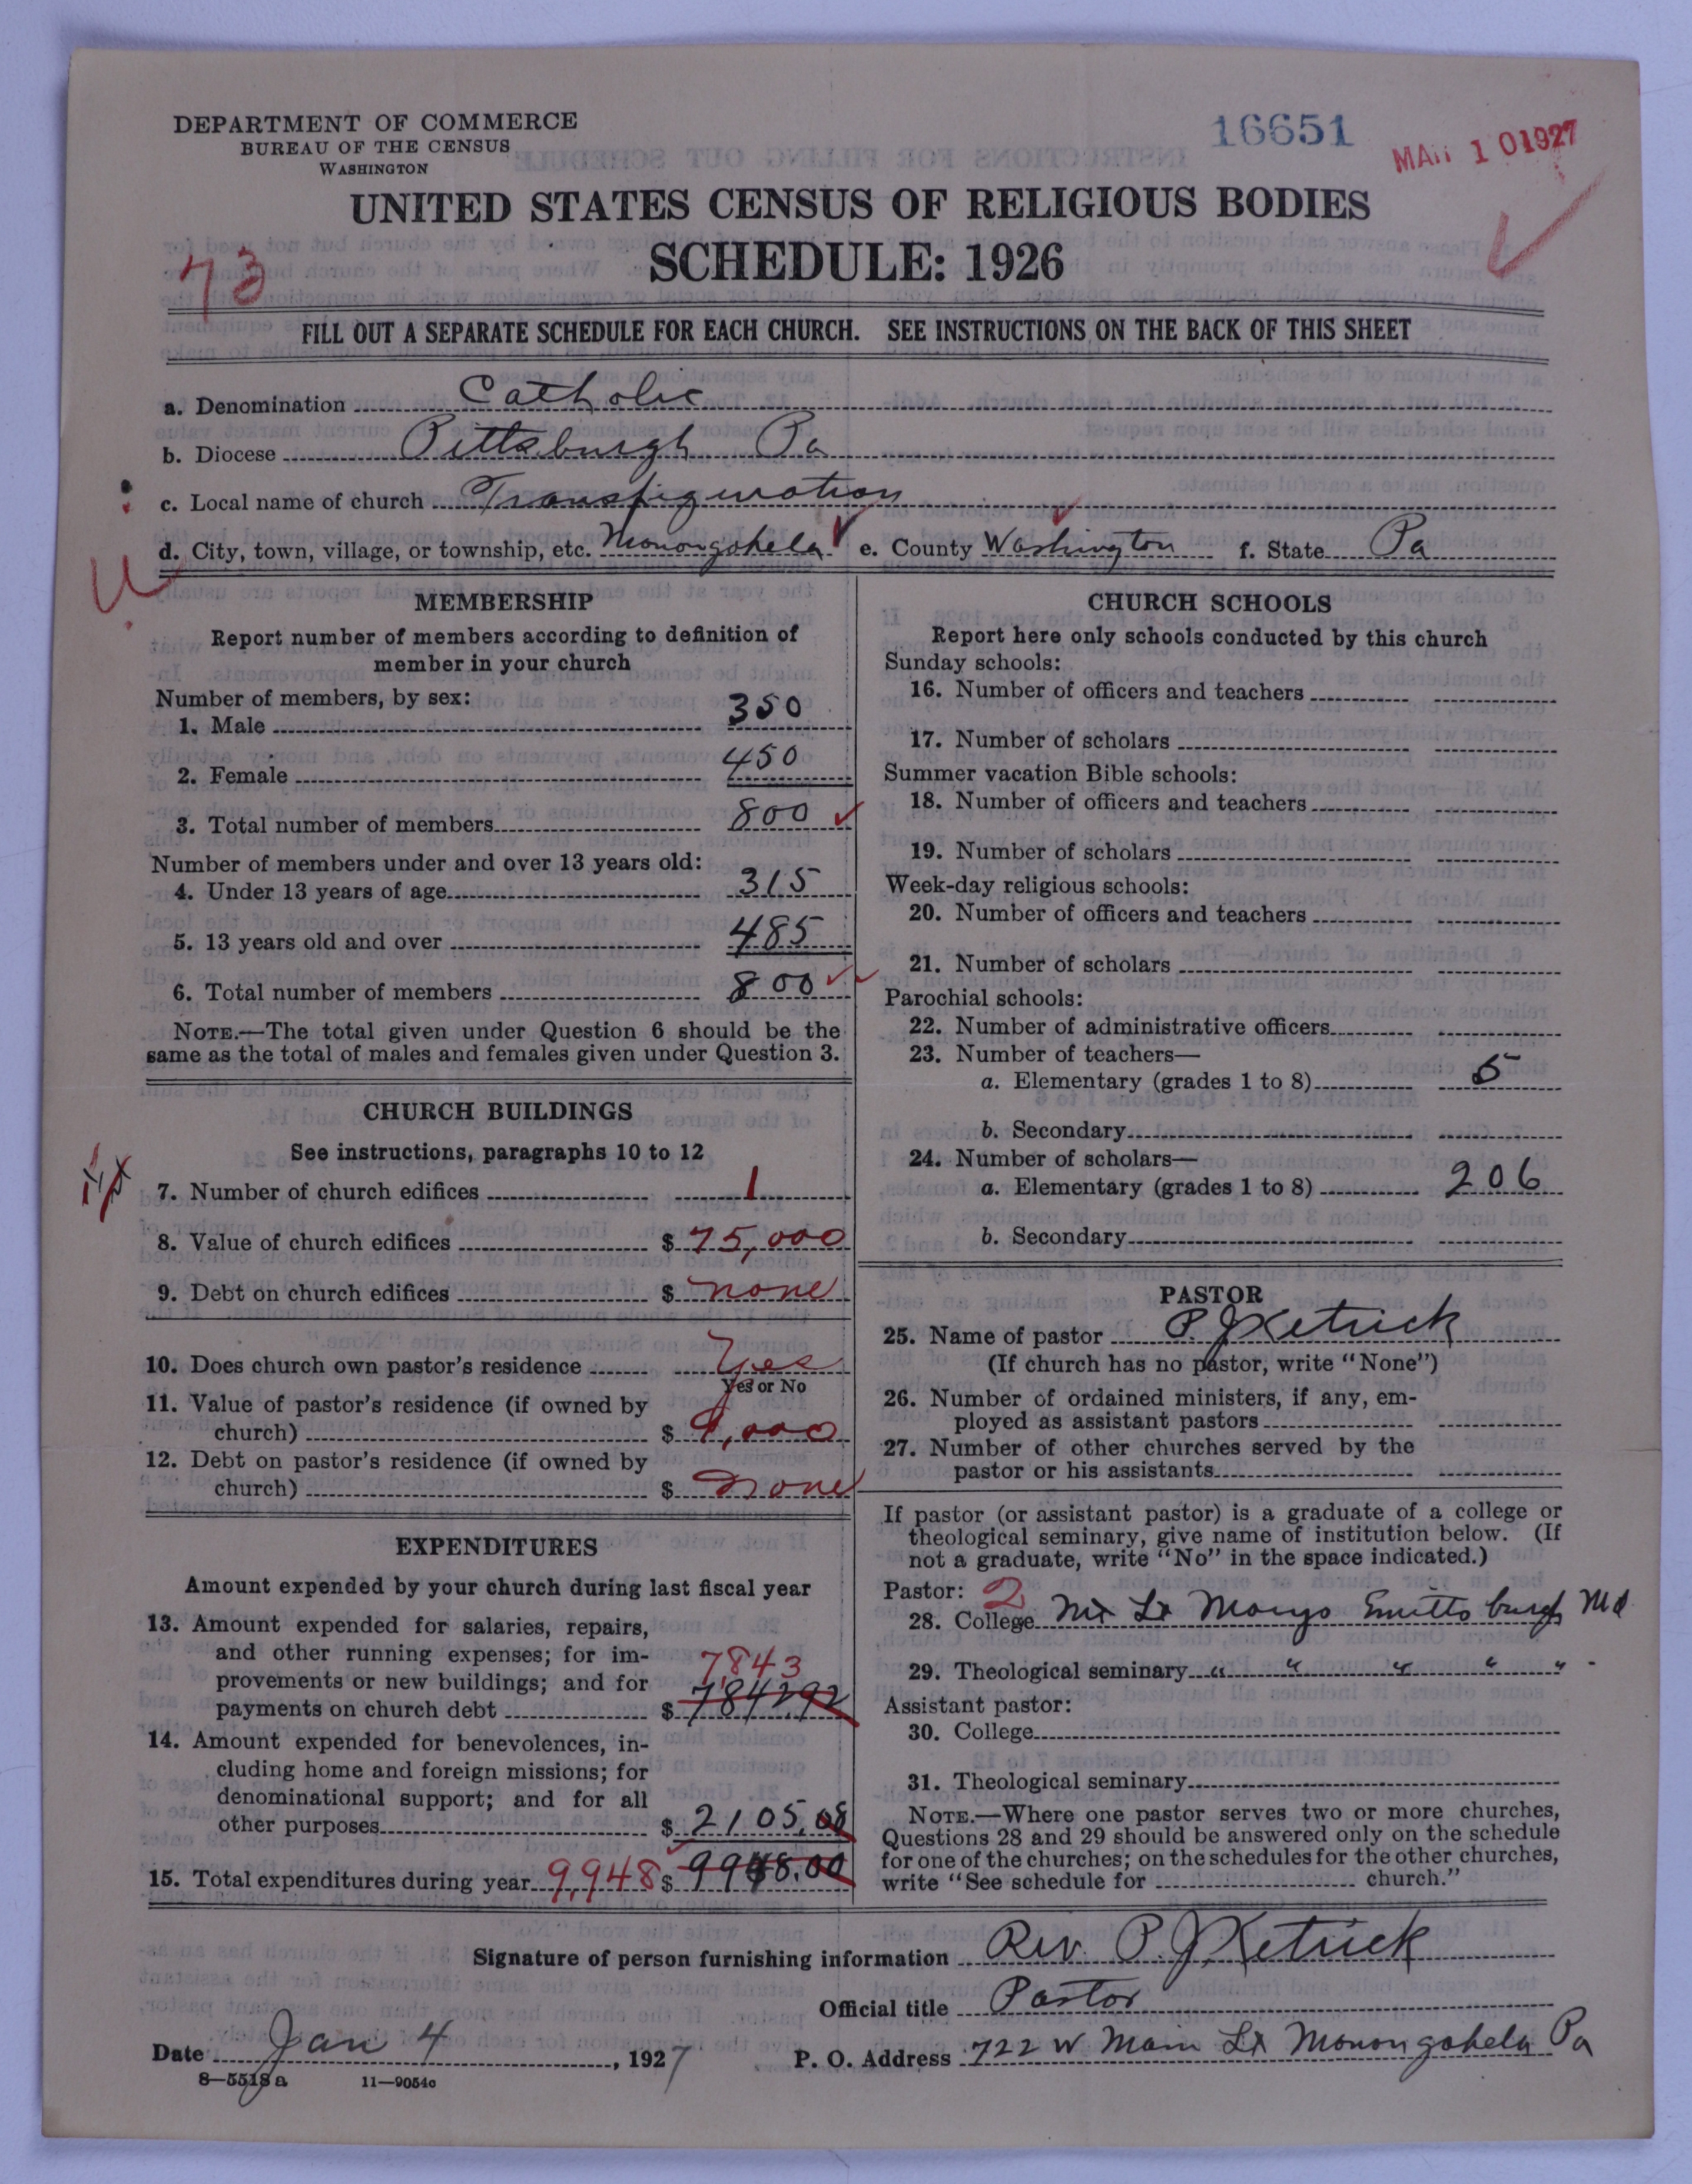 DEPARTMENT OF COMMERCE
BUREAU OF THE CENSUS
WASHINGTON
16651
MAR 10 1927
UNITED STATES CENSUS OF RELIGIOUS BODIES
SCHEDULE: 1926
73
FILL OUT A SEPARATE SCHEDULE FOR EACH CHURCH. SEE INSTRUCTIONS ON THE BACK OF THIS SHEET
a. Denomination Catholic
b. Diocese Pittsburgh Pa
c. Local name of church Transfiguration
d. City, town, village, or township, etc. Monongahela e. County Washington f. State Pa
MEMBERSHIP
Report number of members according to definition of
member in your church
Number of members, by sex:
1. Male 350
2. Female 450
3. Total number of members 800
Number of members under and over 13 years old:
4. Under 13 years of age 315
5. 13 years old and over 485
6. Total number of members 800
NOTE.—The total given under Question 6 should be the
same as the total of males and females given under Question 3.
CHURCH BUILDINGS
See instructions, paragraphs 10 to 12
7. Number of church edifices 1
8. Value of church edifices $ 75,000
9. Debt on church edifices $ none
10. Does church own pastor's residence Yes
Yes or No
11. Value of pastor's residence (if owned by
church) $ 9,000
12. Debt on pastor's residence (if owned by
church) $ none
EXPENDITURES
Amount expended by your church during last fiscal year
13. Amount expended for salaries, repairs,
and other running expenses; for im-
provements or new buildings; and for
7,843
payments on church debt $ 7842.92
14. Amount expended for benevolences, in-
cluding home and foreign missions; for
denominational support; and for all
other purposes $ 2105.08
15. Total expenditures during year 9,948 $ 9948.00
CHURCH SCHOOLS
Report here only schools conducted by this church
Sunday schools:
16. Number of officers and teachers
17. Number of scholars
Summer vacation Bible schools:
18. Number of officers and teachers
19. Number of scholars
Week-day religious schools:
20. Number of officers and teachers
21. Number of scholars
Parochial schools:
22. Number of administrative officers
23. Number of teachers—
a. Elementary (grades 1 to 8) 5
b. Secondary
24. Number of scholars—
a. Elementary (grades 1 to 8) 206
b. Secondary
PASTOR
25. Name of pastor P. J. Ketrick
(If church has no pastor, write "None")
26. Number of ordained ministers, if any, em-
ployed as assistant pastors
27. Number of other churches served by the
pastor or his assistants
If pastor (or assistant pastor) is a graduate of a college or
theological seminary, give name of institution below. (If
not a graduate, write "No" in the space indicated.)
Pastor: 2
28. College Mt St Marys Emittsburgh Md
29. Theological seminary " " " " "
Assistant pastor:
30. College
31. Theological seminary
NOTE.—Where one pastor serves two or more churches,
Questions 28 and 29 should be answered only on the schedule
for one of the churches; on the schedules for the other churches,
write "See schedule for church."
Signature of person furnishing information Rev. P. J. Ketrick
Official title Pastor
Date Jan 4, 1927 P. O. Address 722 W Main St Monongahela Pa
8—5518a 11—9054c